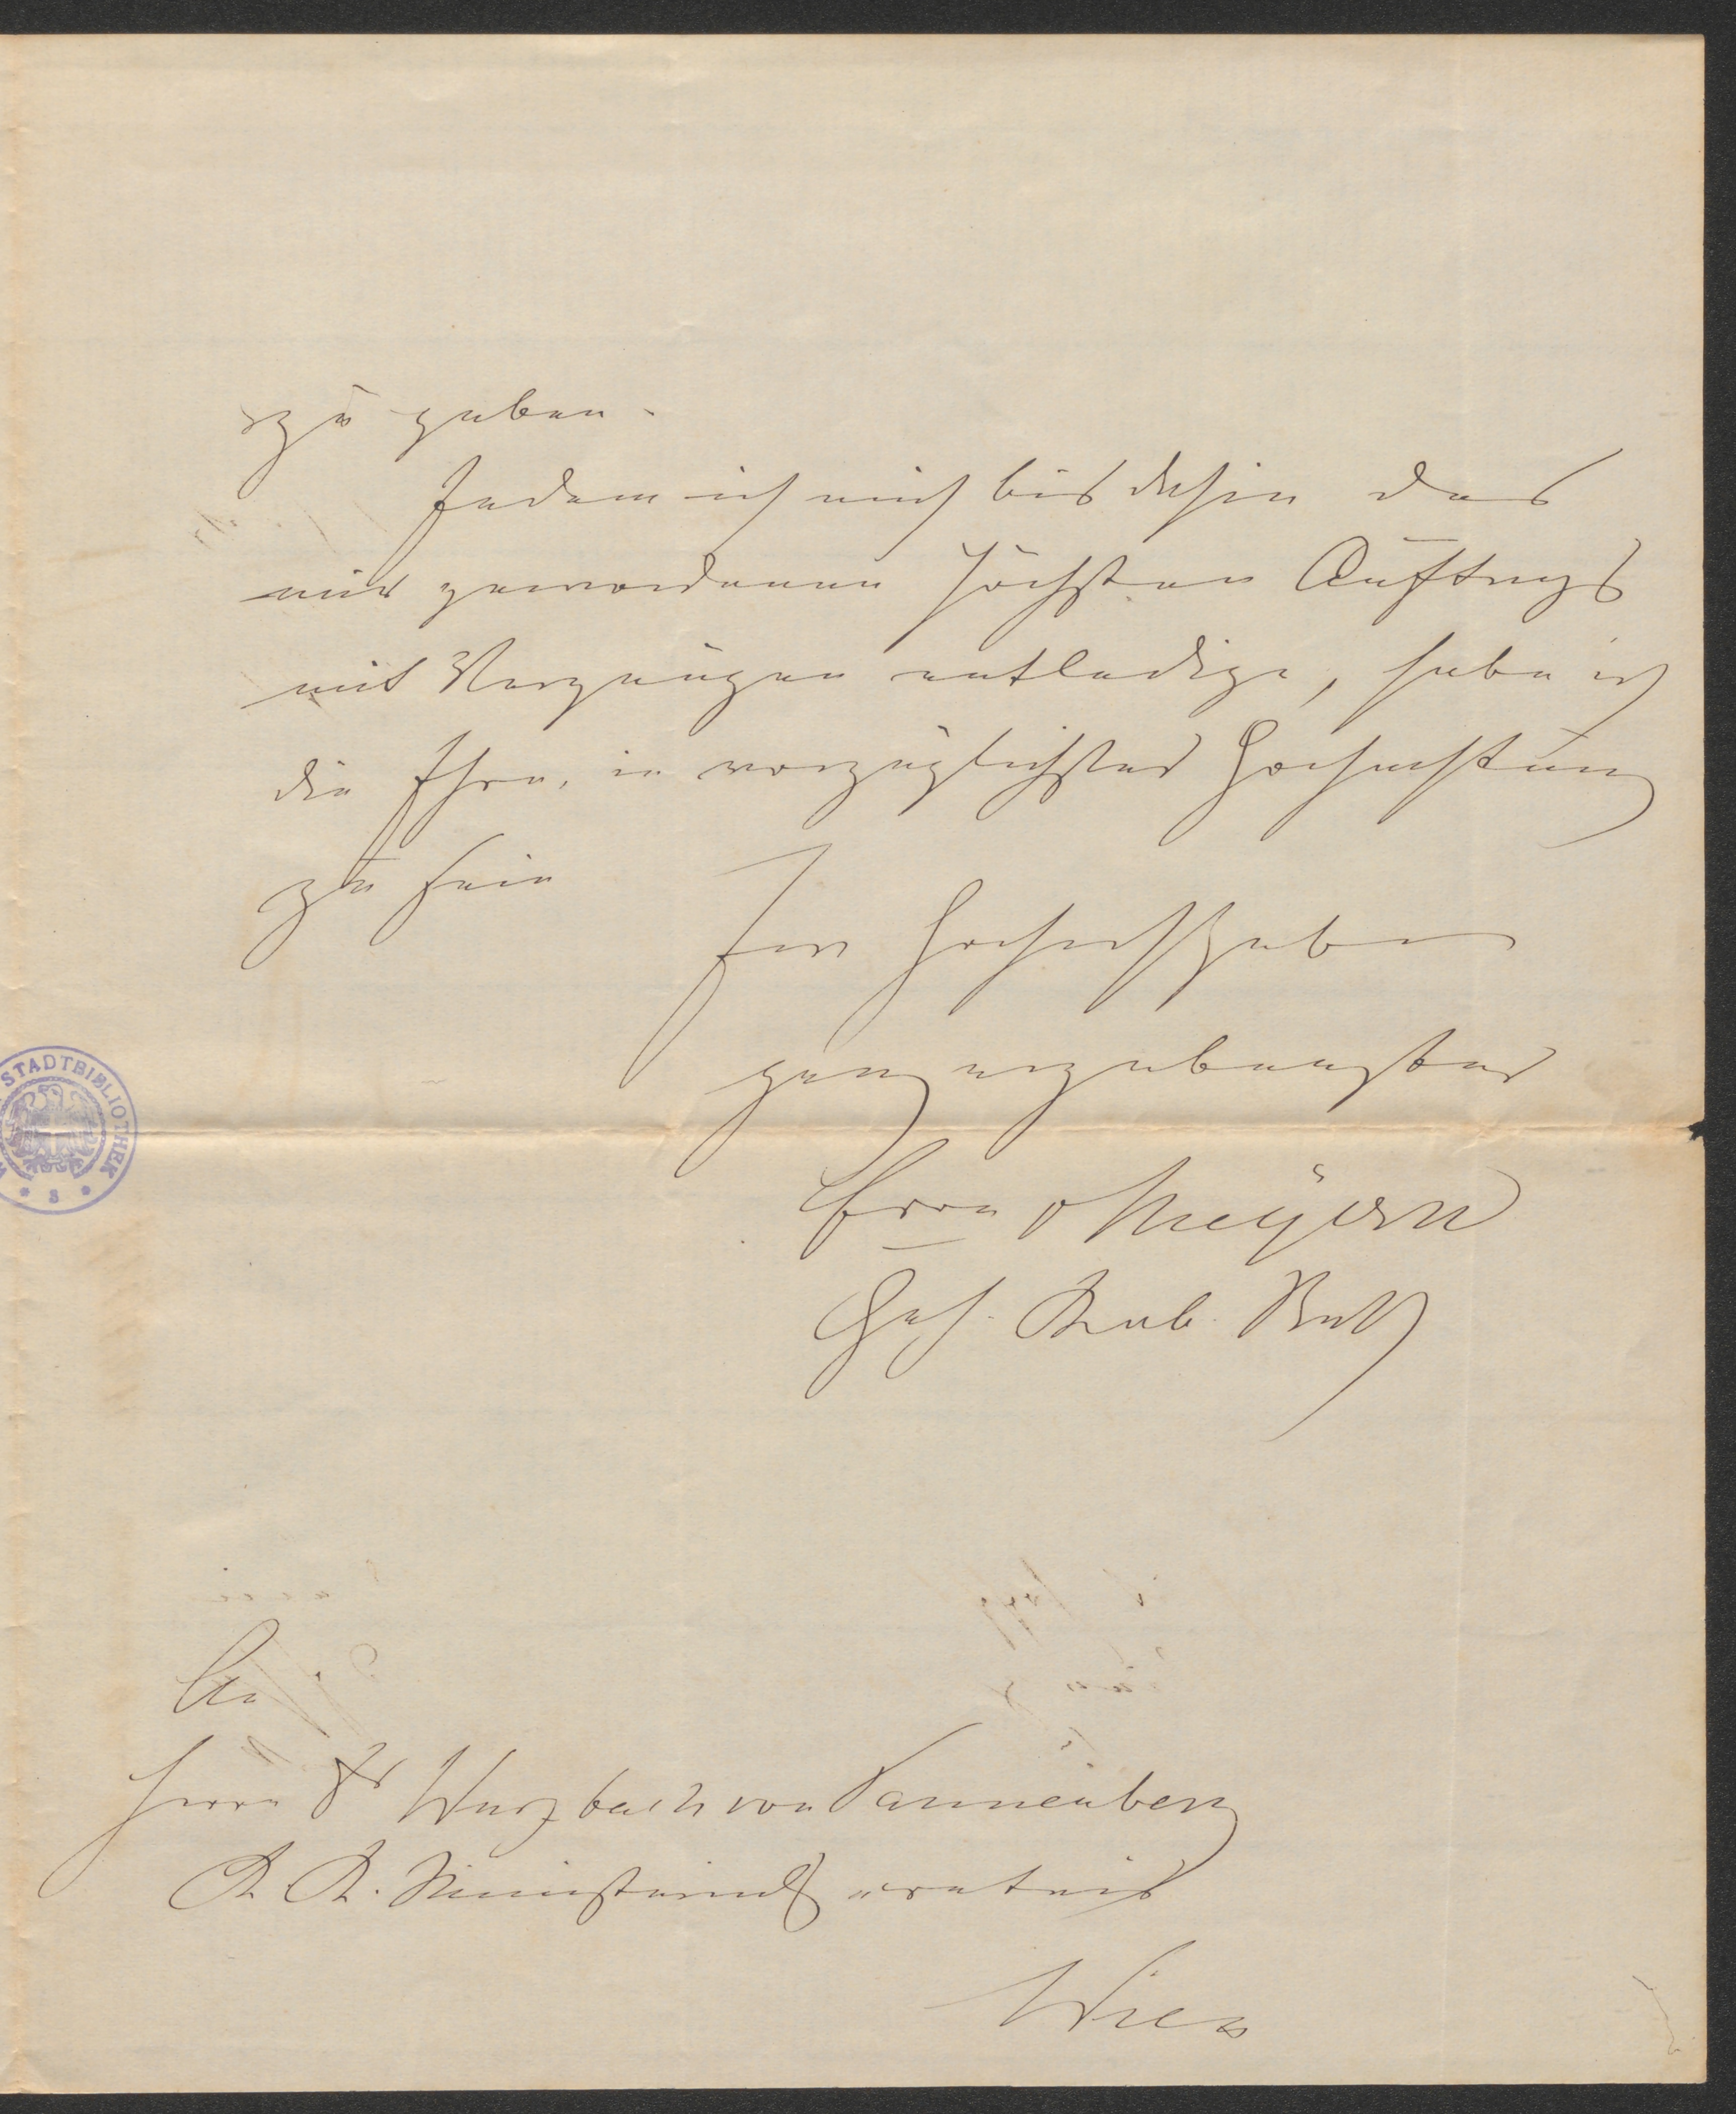 zu geben.
Indem ich mich bis dahin des
mir gewordenen höchsten Auftrags
mit Vergnügen entledige, habe ich
die Ehre, in vorzüglichster Hochachtung
zu sein
Euer Hochwohlgeboren
ganz ergebenster
v Meyern
Geh. Kab. Rath
STADTBIBLIOTHEK
An
Herrn Dr Wurzbach von Tannenberg
K. K. Ministerial
Wien